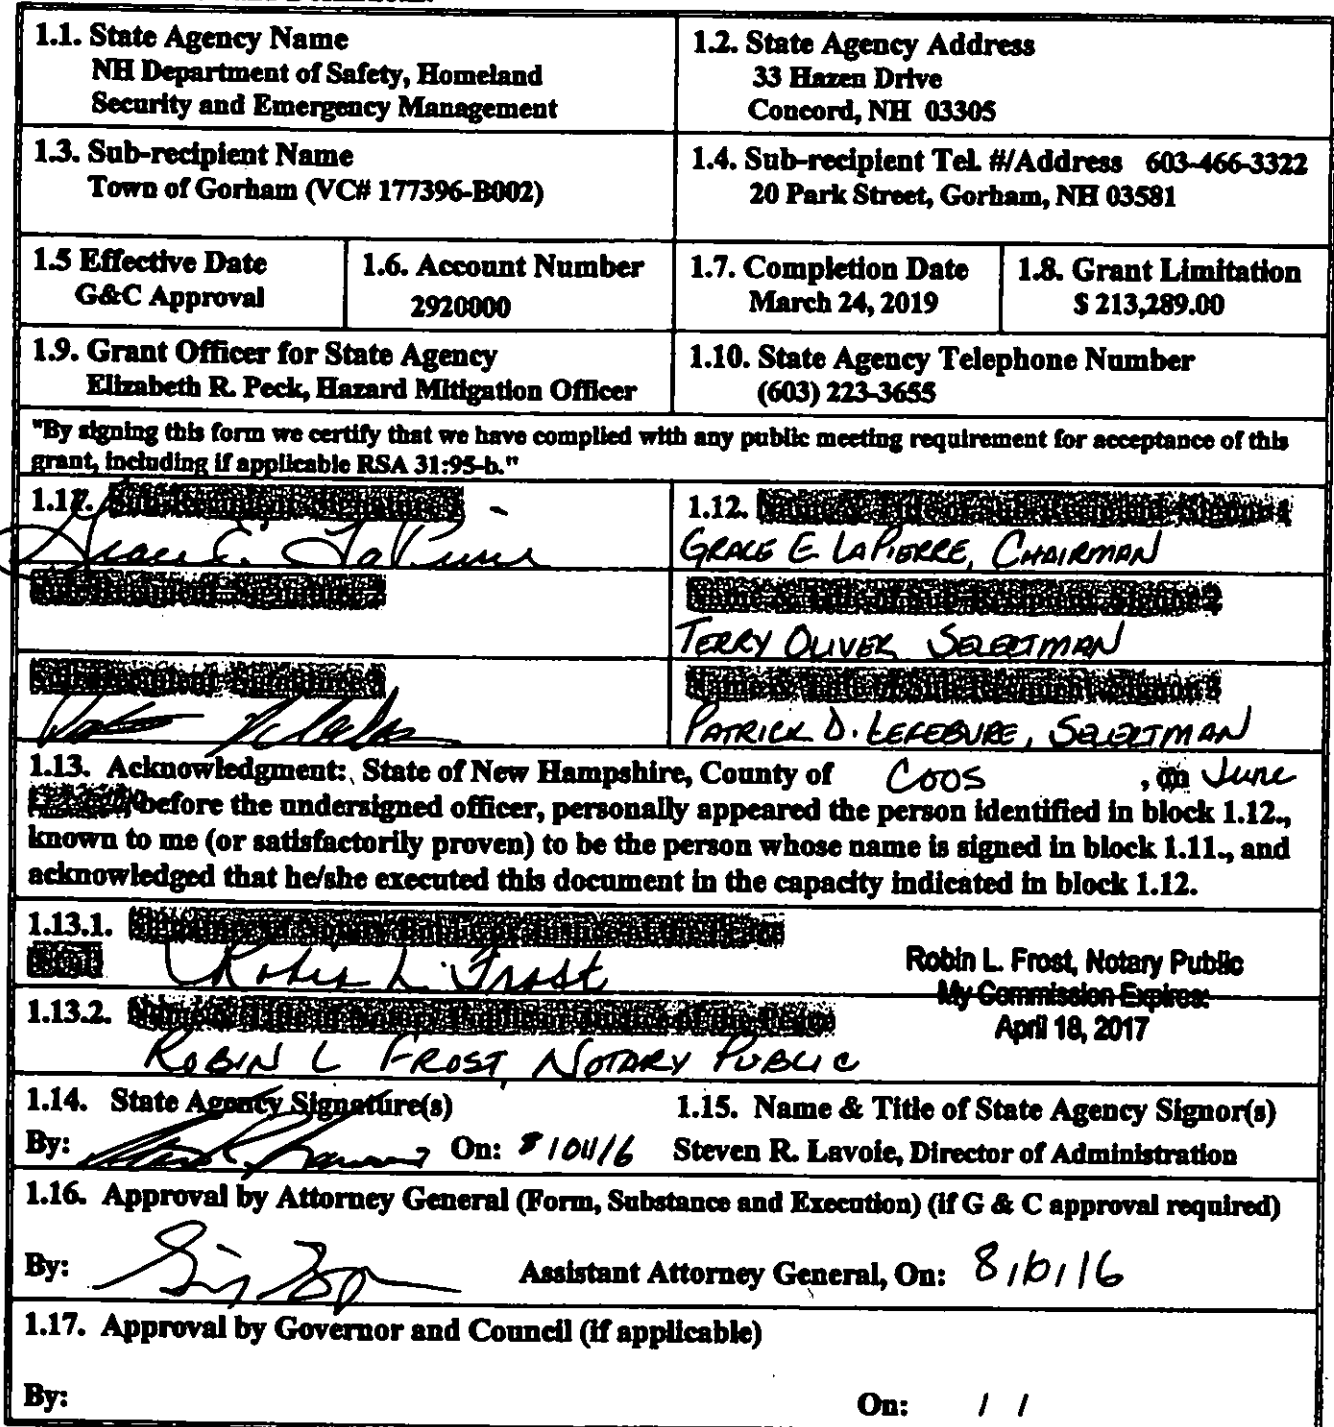 1.1. State Agency Name
NH Department of Safety, Homeland
Security and Emergency Management
1.2. State Agency Address
33 Hazen Drive
Concord, NH 03305
1.3. Sub-recipient Name
Town of Gorham (VC# 177396-B002)
1.4. Sub-recipient Tel. #/Address 603-466-3322
20 Park Street, Gorham, NH 03581
1.5 Effective Date
G&C Approval
1.6. Account Number
2920000
1.7. Completion Date
March 24, 2019
1.8. Grant Limitation
$ 213,289.00
1.9. Grant Officer for State Agency
Elizabeth R. Peck, Hazard Mitigation Officer
1.10. State Agency Telephone Number
(603) 223-3655
"By signing this form we certify that we have complied with any public meeting requirement for acceptance of this
grant, including if applicable RSA 31:95-b."
1.12. Name & Title of Sub-Recipient Signor 1
GRACE E LAPIERRE, CHAIRMAN
Sub-Recipient Signature 2
Name & Title of Sub-Recipient Signor 2
TERRY OLIVER SELECTMAN
Sub-Recipient Signature 3
Name & Title of Sub-Recipient Signor 3
PATRICK D. LEFEBVRE, SELECTMAN
1.13. Acknowledgment: State of New Hampshire, County of COOS , on June
before the undersigned officer, personally appeared the person identified in block 1.12.,
known to me (or satisfactorily proven) to be the person whose name is signed in block 1.11., and
acknowledged that he/she executed this document in the capacity indicated in block 1.12.
1.13.1. Signature of Notary Public or Justice of the Peace
Robin L. Frost
Robin L. Frost, Notary Public
My Commission Expires:
April 18, 2017
1.13.2. Name & Title of Notary Public or Justice of the Peace
ROBIN L FROST, NOTARY PUBLIC
1.14. State Agency Signature(s)
1.15. Name & Title of State Agency Signor(s)
By: On:
Steven R. Lavoie, Director of Administration
1.16. Approval by Attorney General (Form, Substance and Execution) (if G & C approval required)
By: Assistant Attorney General, On:
1.17. Approval by Governor and Council (if applicable)
By: On: / /